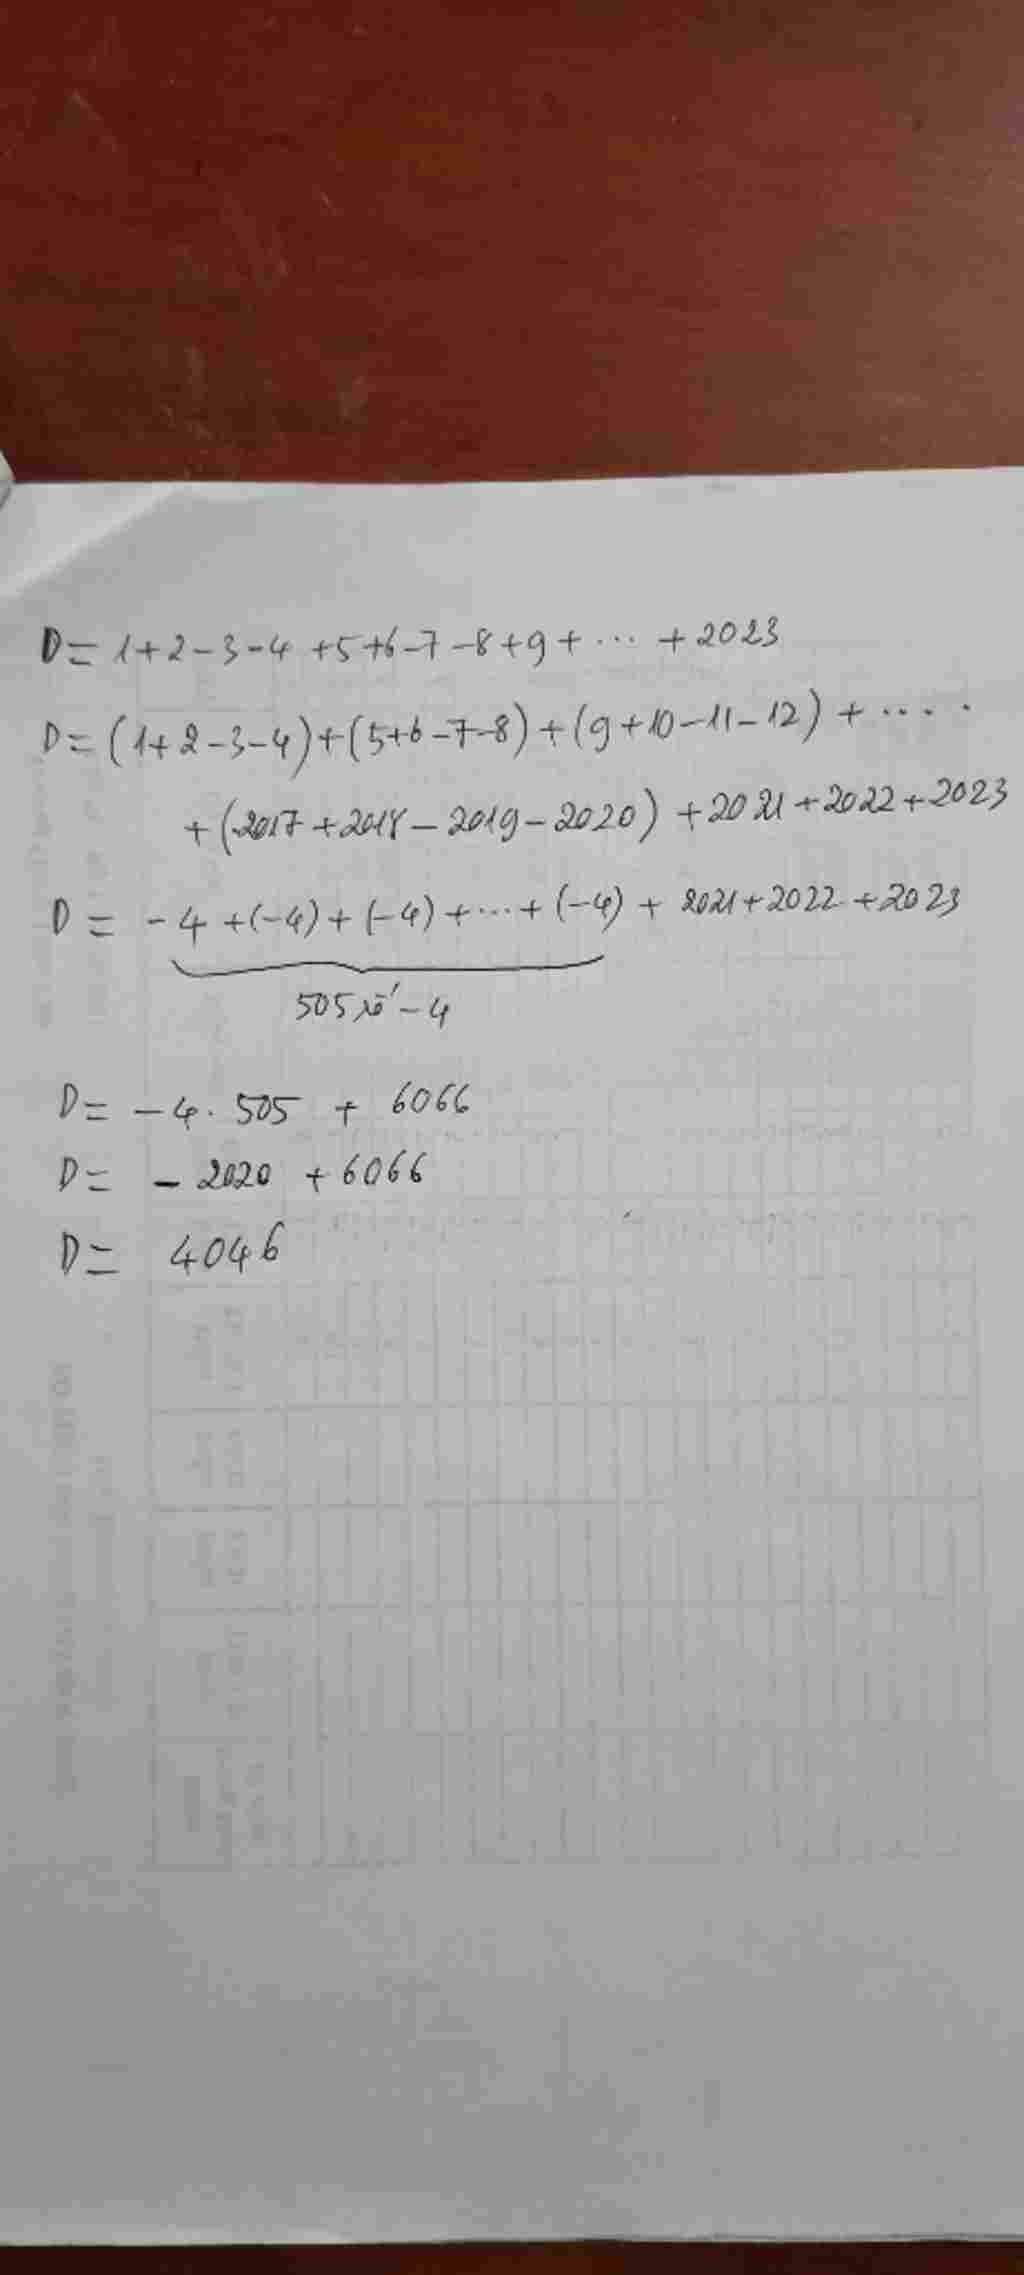 D = 1+2-3-4+5+6-7-8+9+...+2023
D = (1+2-3-4)+(5+6-7-8)+(9+10-11-12)+....
+(2017+2018-2019-2020)+2021+2022+2023
D = -4+(-4)+(-4)+...+(-4)+2021+2022+2023
505 số -4
D = -4.505 + 6066
D = -2020 + 6066
D = 4046